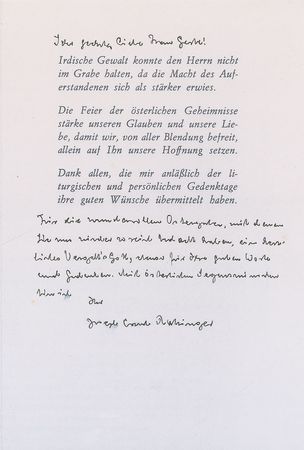 Irdische Gewalt konnte den Herrn nicht
im Grabe halten, da die Macht des Auf-
erstandenen sich als stärker erwies.
Die Feier der österlichen Geheimnisse
stärke unseren Glauben und unsere Lie-
be, damit wir, von aller Blendung befreit,
allein auf Ihn unsere Hoffnung setzen.
Dank allen, die mir anläßlich der li-
turgischen und persönlichen Gedenktage
ihre guten Wünsche übermittelt haben.
Für die wundervollen Ostergaben, mit denen
Sie uns wieder so reich bedacht haben, ein herz-
liches Vergelt's Gott, ebenso für Ihre guten Worte
und Gedanken. Mit österlichen Segenswünschen
bin ich
Ihr
Joseph Ratzinger